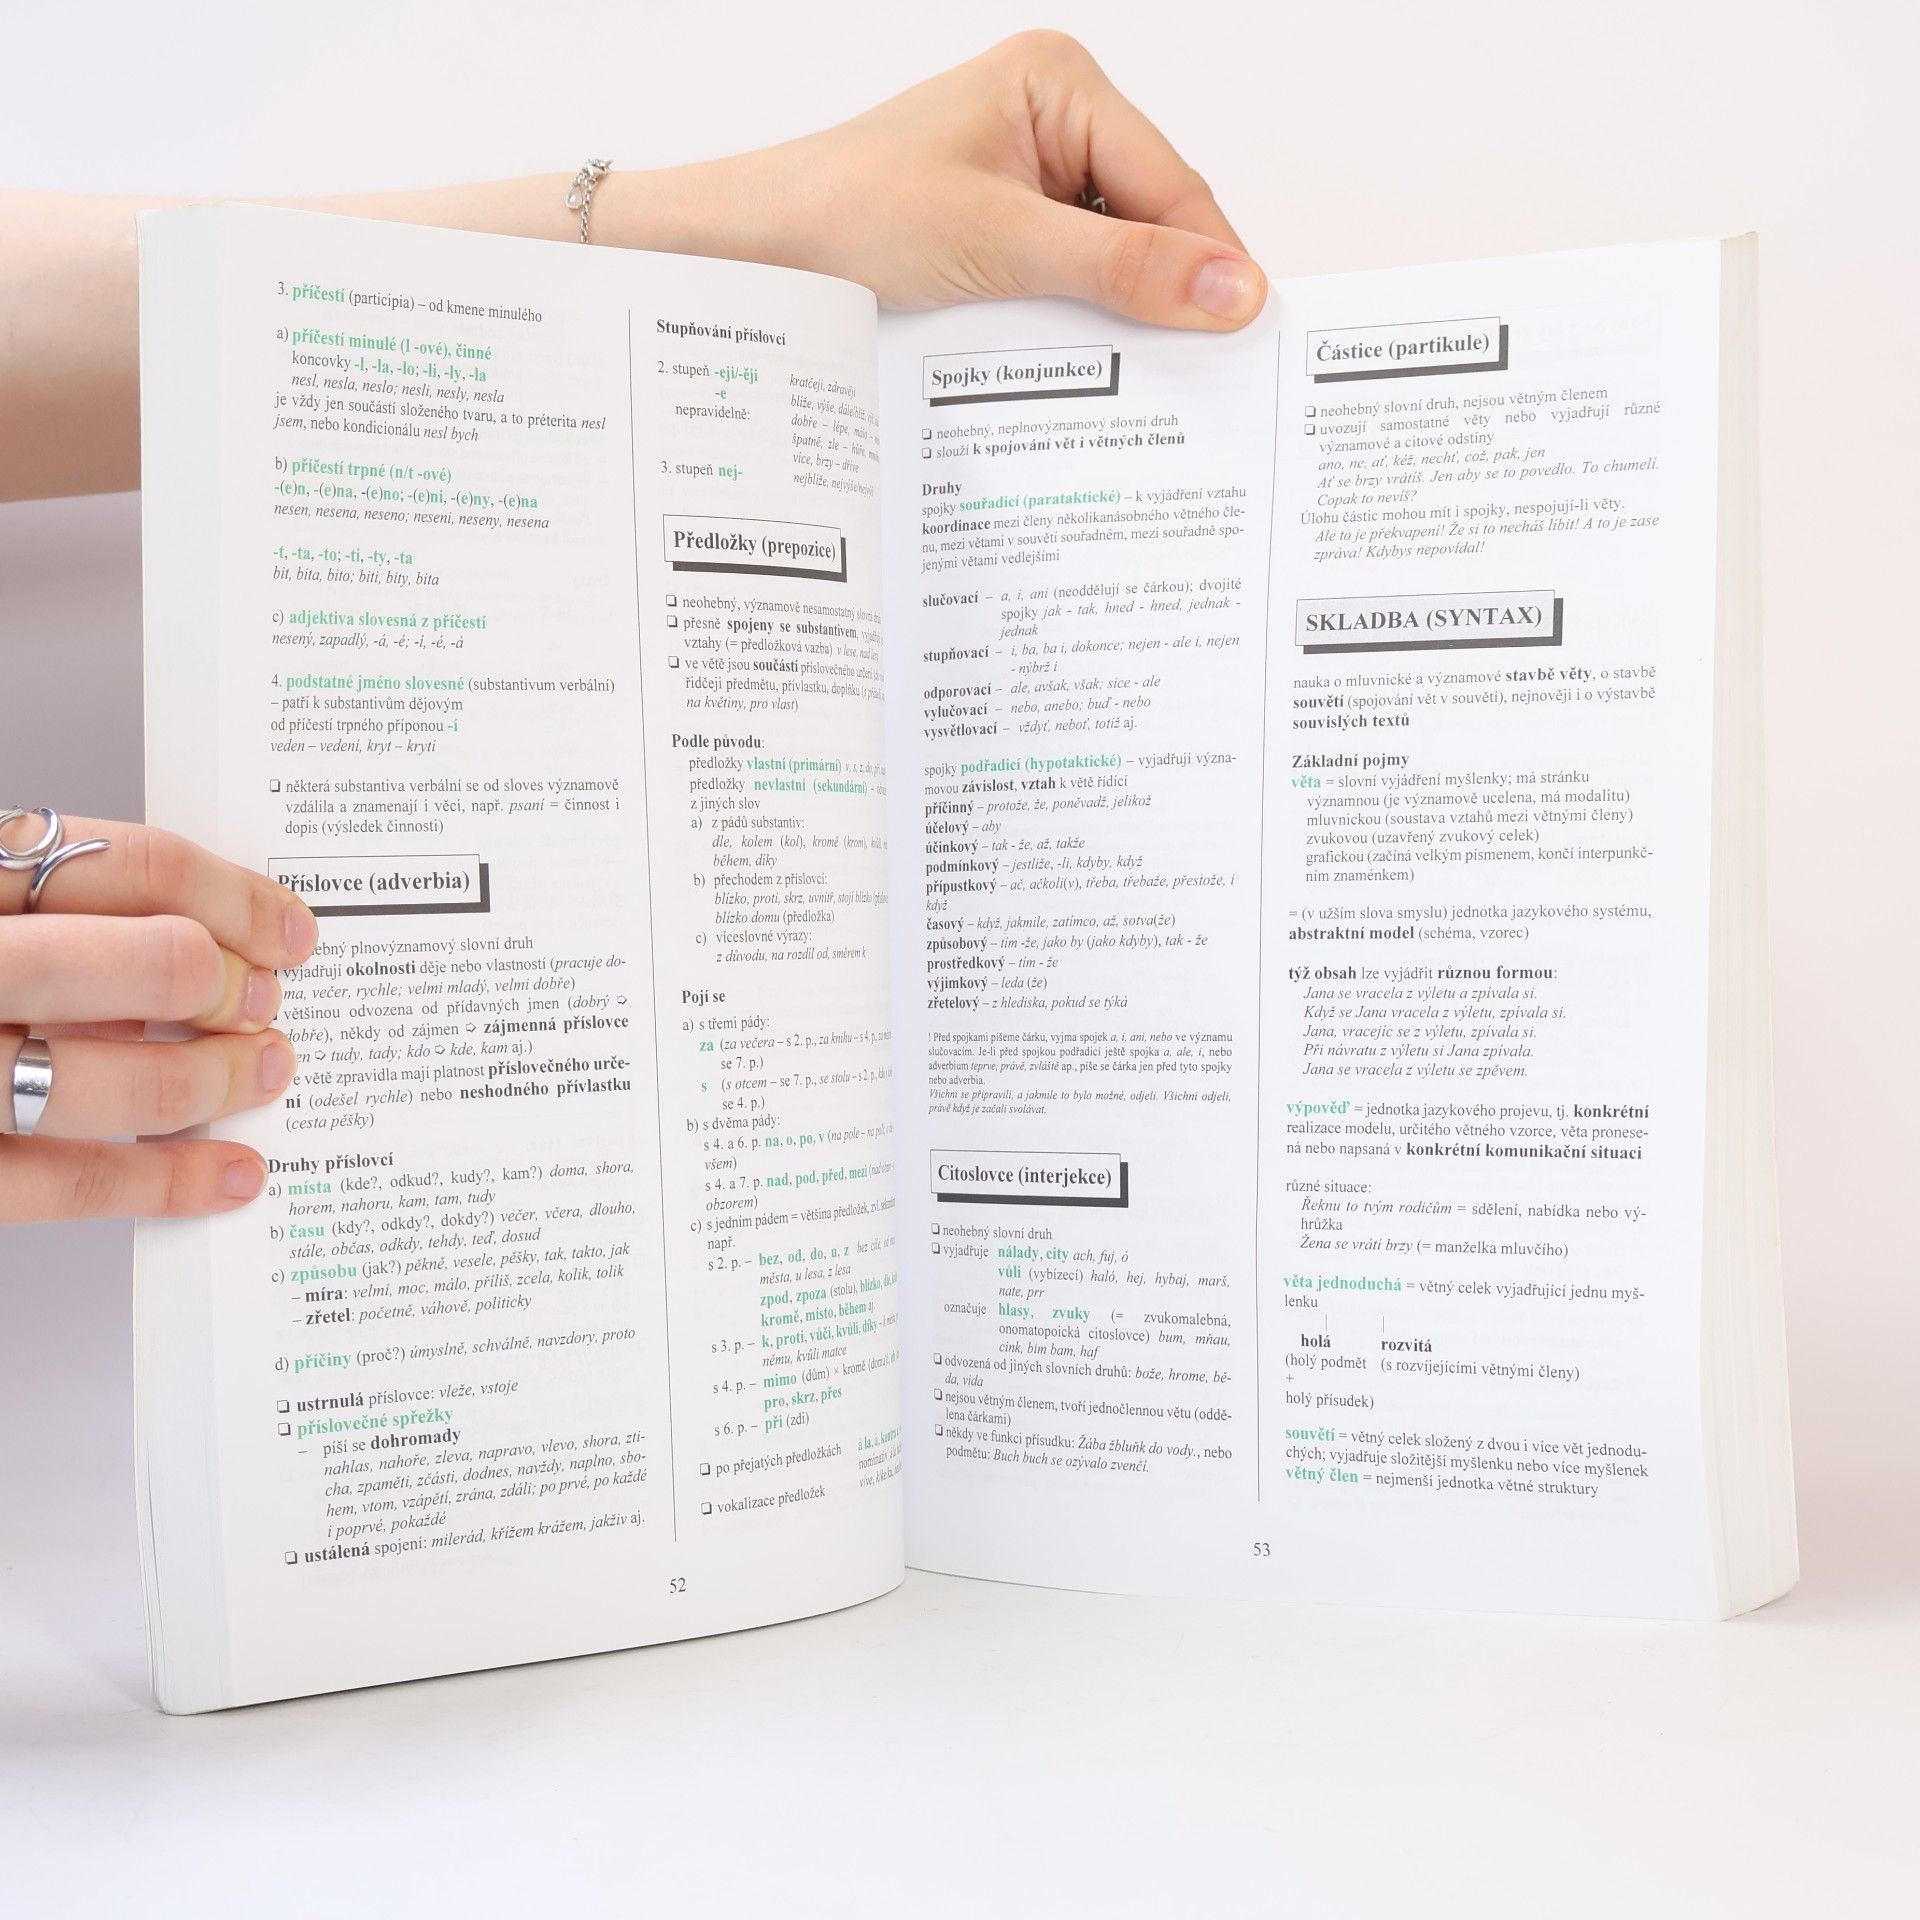 3. příčestí (participia) – od kmene minulého
a) příčestí minulé (l -ové), činné
koncovky -l, -la, -lo; -li, -ly, -la
nesl, nesla, neslo; nesli, nesly, nesla
je vždy jen součástí složeného tvaru, a to préterita nesl
jsem, nebo kondicionálu nesl bych
b) příčestí trpné (n/t -ové)
-(e)n, -(e)na, -(e)no; -(e)ni, -(e)ny, -(e)na
nesen, nesena, neseno; neseni, neseny, nesena
-t, -ta, -to; -ti, -ty, -ta
bit, bita, bito; biti, bity, bita
c) adjektiva slovesná z příčestí
nesený, zapadlý, -á, -é; -í, -é, -á
4. podstatné jméno slovesné (substantivum verbální)
– patří k substantivům dějovým
od příčestí trpného příponou -í
veden – vedení, kryt – krytí
❏ některá substantiva verbální se od sloves významově
vzdálila a znamenají i věci, např. psaní = činnost i
dopis (výsledek činnosti)
Příslovce (adverbia)
plnovýznamový slovní druh
vyjadřují okolnosti děje nebo vlastností (pracuje do-
ma, večer, rychle; velmi mladý, velmi dobře)
většinou odvozena od přídavných jmen (dobrý ➪
dobře), někdy od zájmen ➪ zájmenná příslovce
➪ tudy, tady; kdo ➪ kde, kam aj.)
ve větě zpravidla mají platnost příslovečného urče-
ní (odešel rychle) nebo neshodného přívlastku
(cesta pěšky)
Druhy příslovcí
a) místa (kde?, odkud?, kudy?, kam?) doma, shora,
horem, nahoru, kam, tam, tudy
b) času (kdy?, odkdy?, dokdy?) večer, včera, dlouho,
stále, občas, odkdy, tehdy, teď, dosud
c) způsobu (jak?) pěkně, vesele, pěšky, tak, takto, jak
– míra: velmi, moc, málo, příliš, zcela, kolik, tolik
– zřetel: početně, váhově, politicky
d) příčiny (proč?) úmyslně, schválně, navzdory, proto
❏ ustrnulá příslovce: vleže, vstoje
❏ příslovečné spřežky
– píší se dohromady
nahlas, nahoře, zleva, napravo, vlevo, shora, zti-
cha, zpaměti, zčásti, dodnes, navždy, naplno, sbo-
hem, vtom, vzápětí, zrána, zdáli; po prvé, po každé
i poprvé, pokaždé
❏ ustálená spojení: milerád, křížem krážem, jakživ aj.
Stupňování příslovcí
2. stupeň -eji/-ěji kratčeji, zdravěji
-e blíže, výše, dále/blíž,
nepravidelně: dobře – lépe, málo –
špatně, zle – hůře,
více, brzy – dříve
3. stupeň nej- nejblíže, nejvýše/nejvýš
Předložky (prepozice)
❏ neohebný, významově nesamostatný slovní
❏ přesně spojeny se substantivem,
vztahy (= předložková vazba) v lese, nad
❏ ve větě jsou součástí příslovečného určení
řidčeji předmětu, přívlastku, doplňku
na květiny, pro vlast)
Podle původu:
předložky vlastní (primární) v, s, z, do,
předložky nevlastní (sekundární) –
z jiných slov
a) z pádů substantiv:
dle, kolem (kol), kromě (krom),
během, díky
b) přechodem z příslovcí:
blízko, proti, skrz, uvnitř, stojí blízko
blízko domu (předložka)
c) víceslovné výrazy:
z důvodu, na rozdíl od, směrem k
Pojí se
a) s třemi pády:
za (za večera – s 2. p., za knihu – s 4. p.,
se 7. p.)
s (s otcem – se 7. p., se stolu – s 2. p.,
se 4. p.)
b) s dvěma pády:
s 4. a 6. p. na, o, po, v (na pole –
všem)
s 4. a 7. p. nad, pod, před, mezi (nad
obzorem)
c) s jedním pádem = většina předložek,
např.
s 2. p. – bez, od, do, u, z bez cíle,
města, u lesa, z lesa
zpod, zpoza (stolu), blízko,
kromě, místo, během aj.
s 3. p. – k, proti, vůči, kvůli, díky –
němu, kvůli matce
s 4. p. – mimo (dům) × kromě
pro, skrz, přes
s 6. p. – při (zdi)
❏ po přejatých předložkách à la,
❏ vokalizace předložek
52
Spojky (konjunkce)
❏ neohebný, neplnovýznamový slovní druh
❏ slouží k spojování vět i větných členů
Druhy
spojky souřadicí (parataktické) – k vyjádření vztahu
koordinace mezi členy několikanásobného větného čle-
nu, mezi větami v souvětí souřadném, mezi souřadně spo-
jenými větami vedlejšími
slučovací – a, i, ani (neoddělují se čárkou); dvojité
spojky jak - tak, hned - hned, jednak -
jednak
stupňovací – i, ba, ba i, dokonce; nejen - ale i, nejen
- nýbrž i
odporovací – ale, avšak, však; sice - ale
vylučovací – nebo, anebo; buď - nebo
vysvětlovací – vždyť, neboť, totiž aj.
spojky podřadicí (hypotaktické) – vyjadřují význa-
movou závislost, vztah k větě řídící
příčinný – protože, že, poněvadž, jelikož
účelový – aby
účinkový – tak - že, až, takže
podmínkový – jestliže, -li, kdyby, když
přípustkový – ač, ačkoli(v), třeba, třebaže, přestože, i
když
časový – když, jakmile, zatímco, až, sotva(že)
způsobový – tím -že, jako by (jako kdyby), tak - že
prostředkový – tím - že
výjimkový – leda (že)
zřetelový – z hlediska, pokud se týká
! Před spojkami píšeme čárku, vyjma spojek a, i, ani, nebo ve významu
slučovacím. Je-li před spojkou podřadicí ještě spojka a, ale, i, nebo
adverbium teprve, právě, zvláště ap., píše se čárka jen před tyto spojky
nebo adverbia.
Všichni se připravili, a jakmile to bylo možné, odjeli. Všichni odjeli,
právě když je začali svolávat.
Citoslovce (interjekce)
❏ neohebný slovní druh
❏ vyjadřuje nálady, city ach, fuj, ó
vůli (vybízecí) haló, hej, hybaj, marš,
nate, prr
označuje hlasy, zvuky (= zvukomalebná,
onomatopoická citoslovce) bum, mňau,
cink, bim bam, haf
❏ odvozená od jiných slovních druhů: bože, hrome, bě-
da, vida
❏ nejsou větným členem, tvoří jednočlennou větu (oddě-
lena čárkami)
❏ někdy ve funkci přísudku: Žába žbluňk do vody., nebo
podmětu: Buch buch se ozývalo zvenčí.
Částice (partikule)
❏ neohebný slovní druh, nejsou větným členem
❏ uvozují samostatné věty nebo vyjadřují různé
významové a citové odstíny
ano, ne, ať, kéž, nechť, což, pak, jen
Ať se brzy vrátíš. Jen aby se to povedlo. To chumelí.
Copak to nevíš?
Úlohu částic mohou mít i spojky, nespojují-li věty.
Ale to je překvapení! Že si to necháš líbit! A to je zase
zpráva! Kdybys nepovídal!
SKLADBA (SYNTAX)
nauka o mluvnické a významové stavbě věty, o stavbě
souvětí (spojování vět v souvětí), nejnověji i o výstavbě
souvislých textů
Základní pojmy
věta = slovní vyjádření myšlenky; má stránku
významnou (je významově ucelena, má modalitu)
mluvnickou (soustava vztahů mezi větnými členy)
zvukovou (uzavřený zvukový celek)
grafickou (začíná velkým písmenem, končí interpunkč-
ním znaménkem)
= (v užším slova smyslu) jednotka jazykového systému,
abstraktní model (schéma, vzorec)
týž obsah lze vyjádřit různou formou:
Jana se vracela z výletu a zpívala si.
Když se Jana vracela z výletu, zpívala si.
Jana, vracejíc se z výletu, zpívala si.
Při návratu z výletu si Jana zpívala.
Jana se vracela z výletu se zpěvem.
výpověď = jednotka jazykového projevu, tj. konkrétní
realizace modelu, určitého větného vzorce, věta pronese-
ná nebo napsaná v konkrétní komunikační situaci
různé situace:
Řeknu to tvým rodičům = sdělení, nabídka nebo vý-
hrůžka
Žena se vrátí brzy (= manželka mluvčího)
věta jednoduchá = větný celek vyjadřující jednu myš-
lenku
holá rozvitá
(holý podmět (s rozvíjejícími větnými členy)
+
holý přísudek)
souvětí = větný celek složený z dvou i více vět jednodu-
chých; vyjadřuje složitější myšlenku nebo více myšlenek
větný člen = nejmenší jednotka větné struktury
53